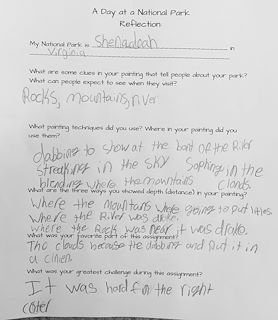 A Day at a National Park
Reflection
My National Park is Shenadoah in
Virginia
What are some clues in your painting that tell people about your park?
What can people expect to see when they visit?
Rocks, mountains, river
What painting techniques did you use? Where in your painting did you
use them?
dabbing to show at the bank of the River
streaking in the sky in the
blending where the mountains clouds.
What are the three ways you showed depth (distance) in your painting?
Where the mountans where going to put
Where the River was
where the Rock was near it was drake.
What was your favorite part of this assignment?
The clouds because the dabbing and Put it in
a
What was your greatest challenge during this assignment?
It was hard for the right